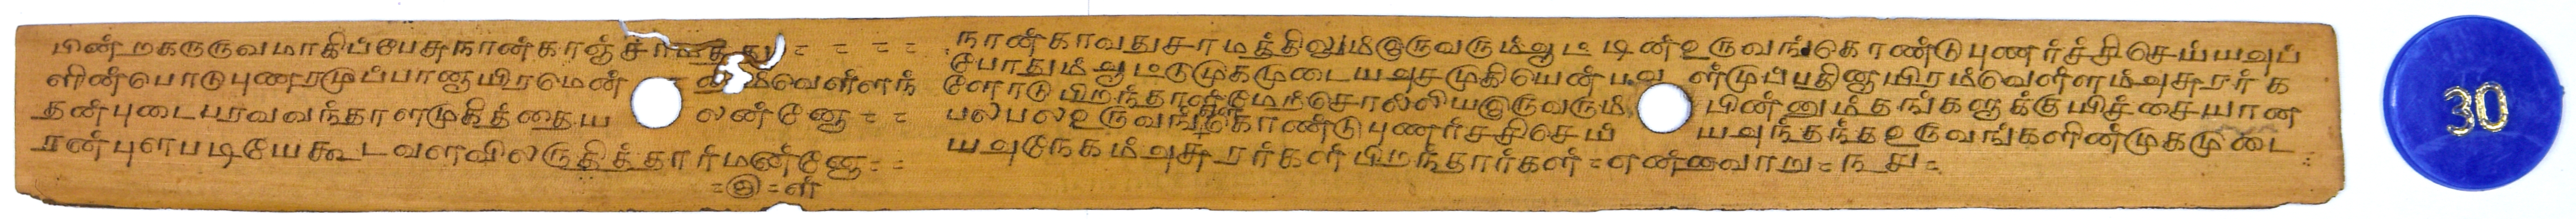 பின்றகருருவமாகிப்பேசுநான்கரஞ் = = = =
ளின்பொடுபுணரமுப்பாறாயிரமென் வெள்ளந்
தன்புடைபரவவந்தாளமுகித்தைய லன்னே = =
ரன்புளபடியேகூடவளவிலருதித்தார்மன்னே = =
= ௫ = ள்
நான்காவதுசாமத்திலும்இருவரும்ஆட்டின்உருவங்கொண்டுபுணர்ச்சிசெய்யஅப்
போதும்ஆட்டுமுகமுடையஅசமுகியென்ப ள்முப்பதினாயிரம்வெள்ளம்அசுரர்க
ளோடுபிறந்தாள்மேற்சொல்லியஇருவரும் பின்னும்தங்களுக்குயிச்சையான
பலபலஉருவங்கொண்டுபுணர்ச்சிசெய் யஅந்தந்தஉருவங்களின்முகமுடை
யஅநேகம்அசுரர்கள்பிறந்தார்கள் = என்றவாறு =
30